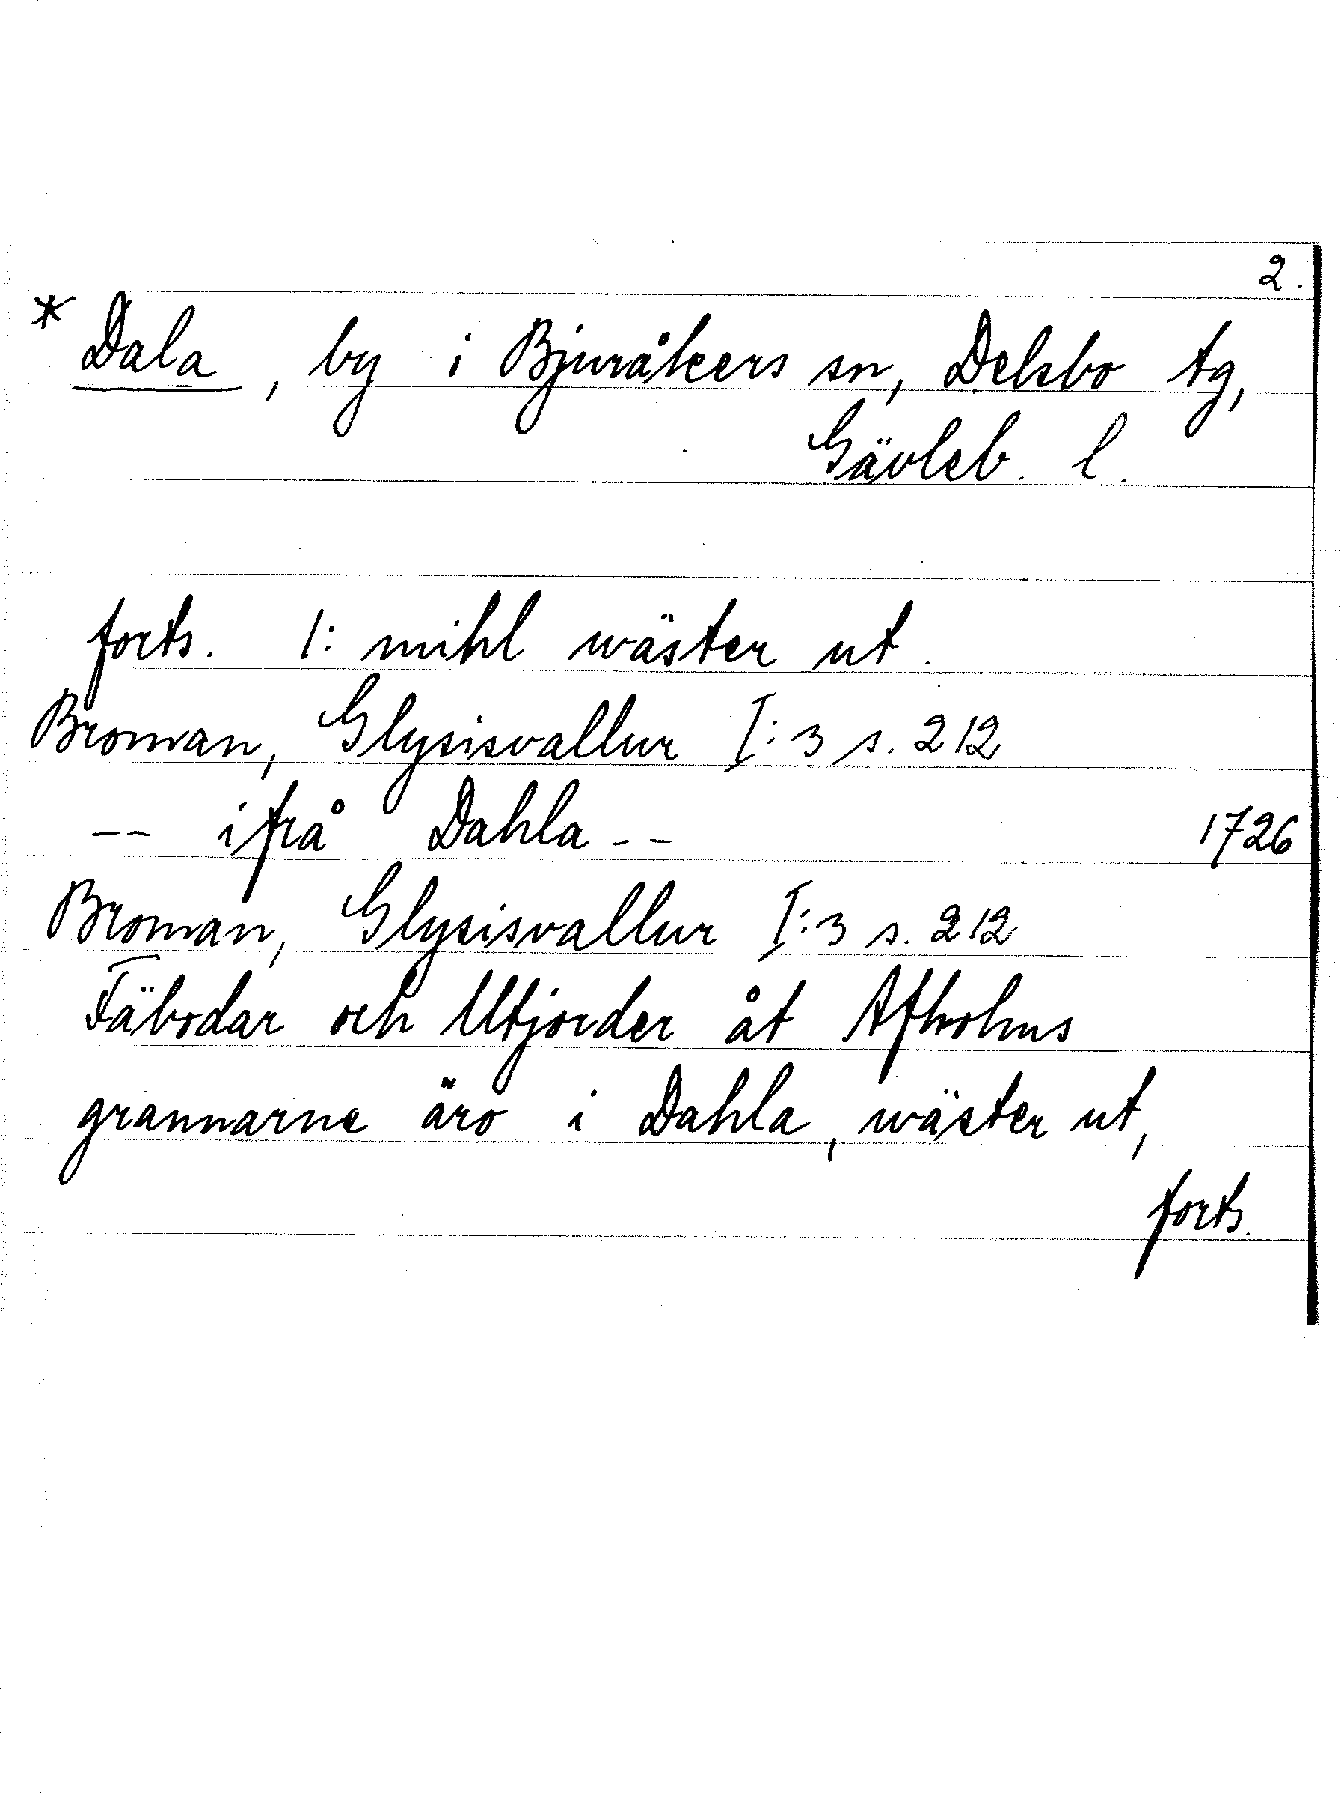 2.
* Dala, by i Bjuråkers sn, Delsbo tg,
Gävleb. l.
forts. 1: mihl wäster ut.
Broman, Glysisvallur I:3 s. 212
-- ifrå Dahla -- 1726
Broman, Glysisvallur I:3 s. 212
Fäbodar och Utjorder åt Afholms
grannarne äro i Dahla, wäster ut,
forts.